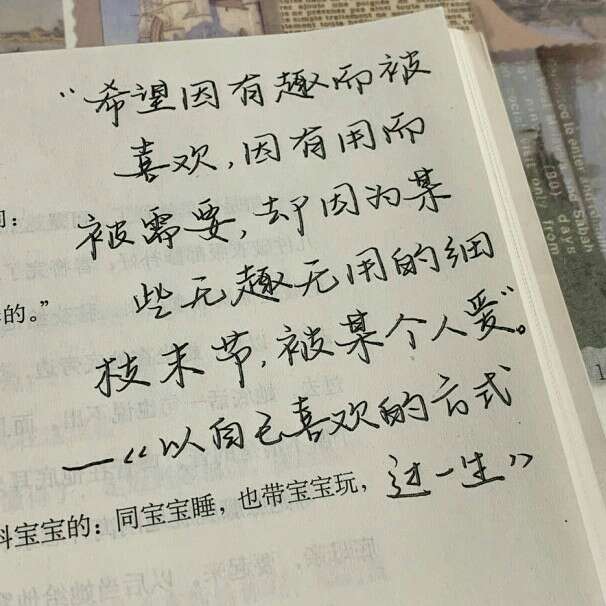 “希望因有趣而被
喜欢,因有用而
被需要,却因为某
些无趣无用的细
枝末节,被某个人爱”。
——《以自己喜欢的方式
过一生》
的。”
科宝宝的:同宝宝睡,也带宝宝玩,